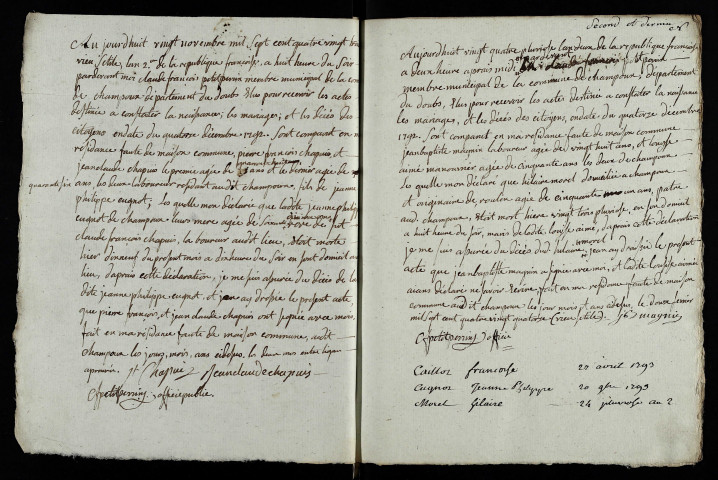 Aujourdhuit vingt novembre mil sept cent quatre vingt
vieu stile, lan 2.e de la republique françoise, a huit heure du soir
pardevant moi claude françois petit perrin membre municipal de la com
de champoux departement du doubs. Elus pour recevoir les actes
destiné a constater la naissance, les mariages, et les décès des
citoyens endate du quatorze décembre 1792. Sont comparut en m
résidance faute de maison commune, pierre françois chapuis, et
jeanclaude chapuis le premié agée de ans et le dernier agée de
quarante six ans, les deux laboureur residant audit champoux, fils de jeanne
philippe cugnot, les quelle mon déclaré que ladite jeanne philippe
cugnot de champoux leur mere agée de soixante veve de feut
claude françois chapuis, laboureur audit lieu, Etoit morte
hier dixneuf du present mois a dix heure du soir en sont domicil au
lieu, daprais cette déclaration, je me suis assurée du décès de la
dite jeanne philippe cugnot, et jean ay drapée le present acte,
que pierre françois, et jeanclaude chapuis ont signée avec moi,
fait en ma résidance faute de maison commune, audit
champoux les jours, mois, ans cidessus, les deux ans entre ligne
aprouvée. Jf Chapuis Jeanclaude chapuis
Cfpetitperrin, officié public.
Second et dernier
Aujourdhuit vingt quatre pluviose lan deux de la republique françoise
a deux heure aprais midi, pardevant claude françois petit perrin
membre municipal de la commune de champoux, departement
du doubs. Elus pour recevoir les actes destiné a constater la naissance
les mariages, et les décès des citoyens, endate du quatorze décembre
1792. Sont comparut en ma residance faute de maison commune
jeanbaptiste magnin laboureur agée de vingt huit ans, et louise
aimé manonvrier agée de cinquante ans les deux de champoux
le quelle mon déclaré que hilaire morel domiciliée a champoux
et originaire de roulon agée de cinquante un ans, patre
aud. champoux, Etoit mort hiere vingt trois pluviose, en son domicil
a huit heure du soir, mari de ladite louise aimé, daprais cette déclaration
je me suis assurée du décès dud. hilaire morel, jean ay drapée le present
acte que jeanbaptiste magnin a signée avec moi, et ladite louise aimée
aiant déclaré ne savoir écrire, fait en ma résidance faute de maison
commune audit champoux les jour mois et ans cidessus, le douze fevrier
mil sept cent quatre vingt quatorze (vieu stile). Jb magnin
Cfpetitperrin officié
Caillot françoise 20 avril 1793
Cugnot Jeanne Philippe 20 9bre 1793
Morel hilaire 24 pluviose an 2